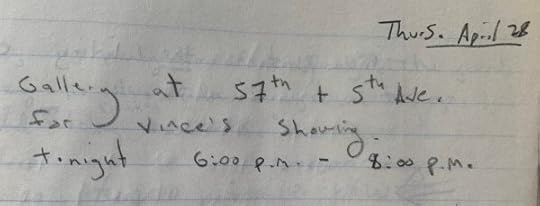 Thurs. April 28
Gallery at 57th + 5th Ave.
for Vince's Showing.
tonight 6:00 p.m. - 8:00 p.m.